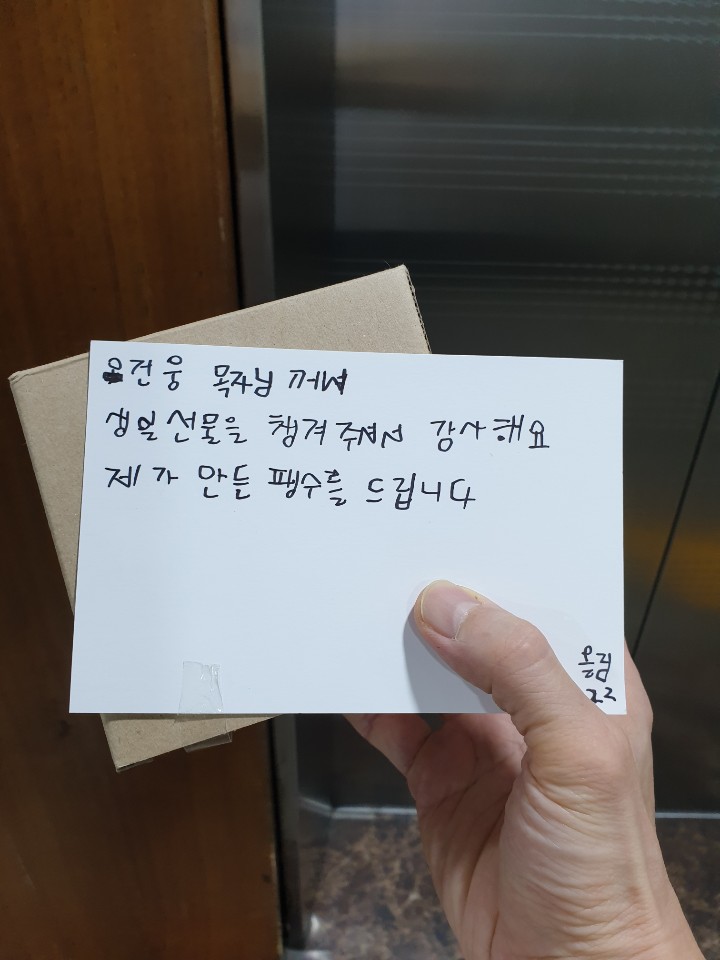 오건웅 목자님 께서
생일 선물을 챙겨 주셔서 감사해요
제가 만든 팹수를 드립니다
올림